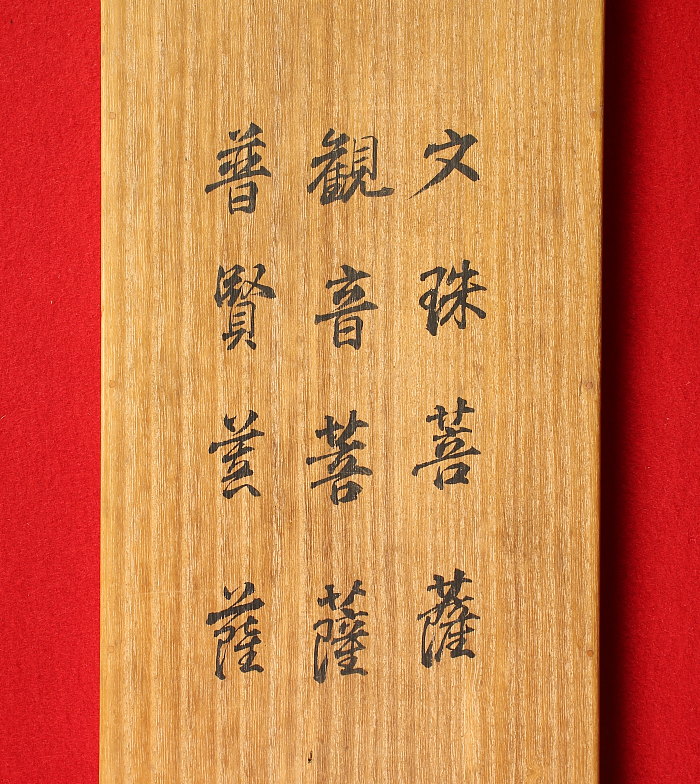 文珠菩薩
観音菩薩
普賢菩薩